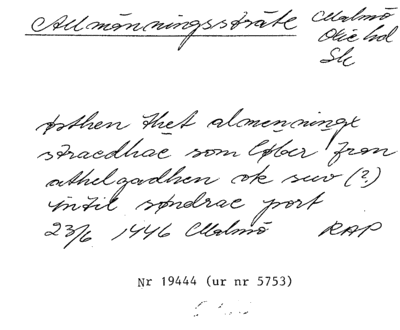 Allmänningssträte Malmö
Oxie hd
Sk
østhen thet almenninge
straedhae som løber fron
athelgadhen ok suo (?)
intil søndrae port
23/6 1446 Malmö RAP
Nr 19444 (ur nr 5753)